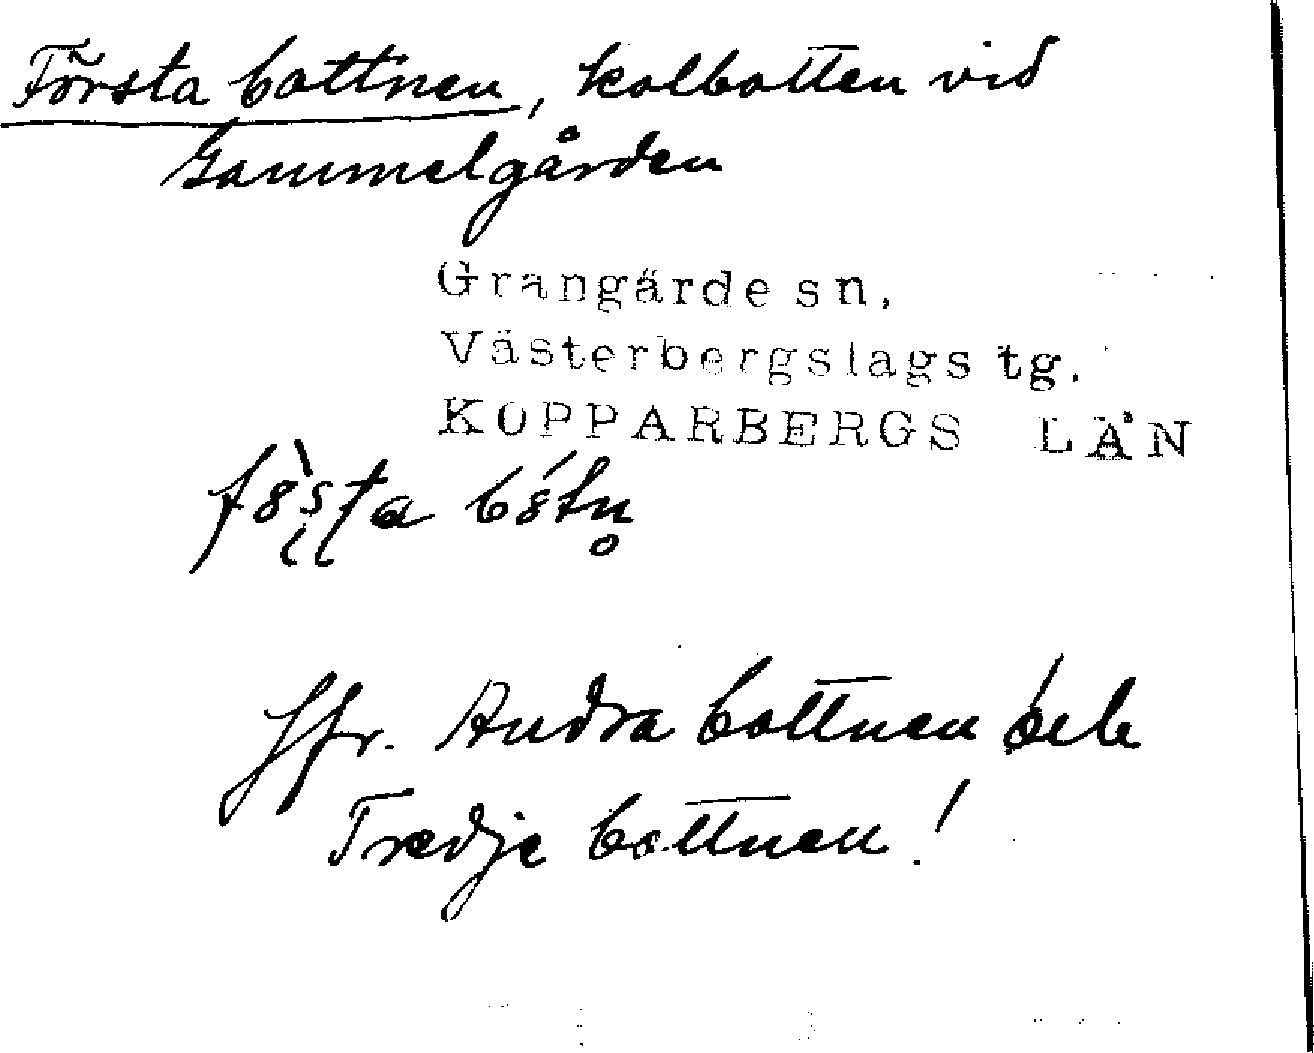 Första bottnen, kolbotten vid
Gammelgården
Grangärde sn,
Västerbergslags tg.
KOPPARBERGS LÄN
Jfr. Andra bottnen
Tredje bottnen!